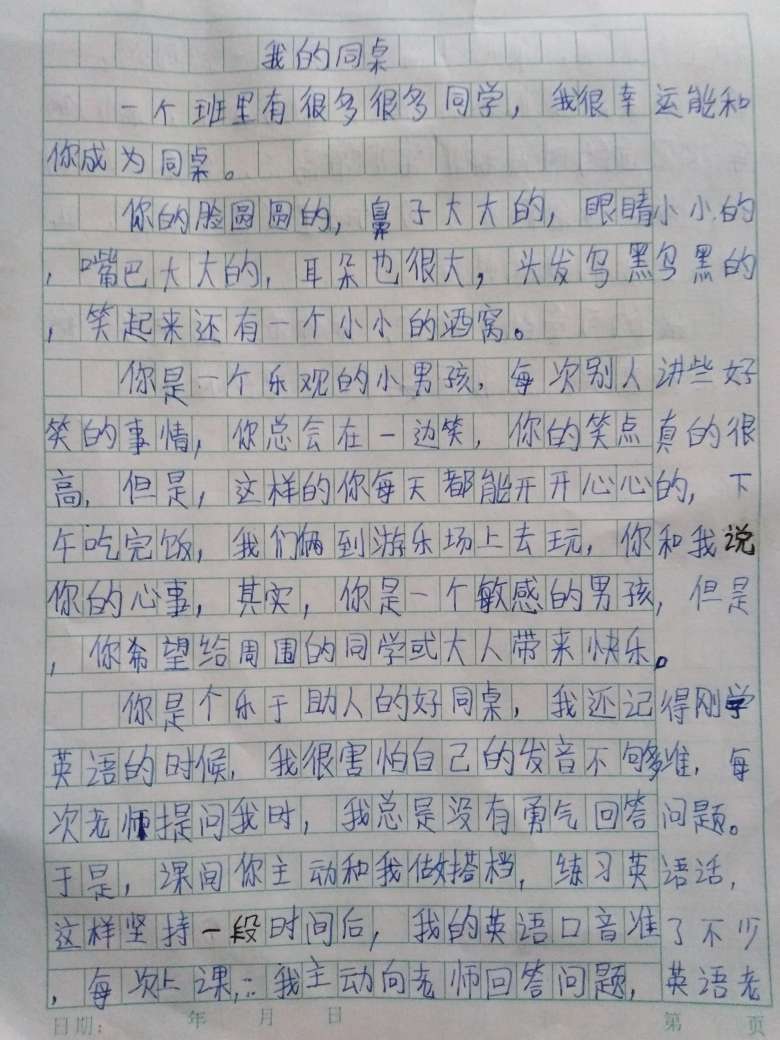 我的同桌
一个班里有很多很多同学，我很幸运能和
你成为同桌。
你的脸圆圆的，鼻子大大的，眼睛小小的
，嘴巴大大的，耳朵也很大，头发乌黑乌黑的
，笑起来还有一个小小的酒窝。
你是一个乐观的小男孩，每次别人讲些好
笑的事情，你总会在一边笑，你的笑点真的很
高，但是，这样的你每天都能开开心心的，下
午吃完饭，我们俩到游乐场上去玩，你和我说
你的心事，其实，你是一个敏感的男孩，但是
，你希望给周围的同学或大人带来快乐。
你是个乐于助人的好同桌，我还记得刚学
英语的时候，我很害怕自己的发音不够准，每
次老师提问我时，我总是没有勇气回答问题。
于是，课间你主动和我做搭档，练习英语话，
这样坚持一段时间后，我的英语口音准了不少
，每次上课，我主动向老师回答问题，英语老
日期： 年 月 日 第 页